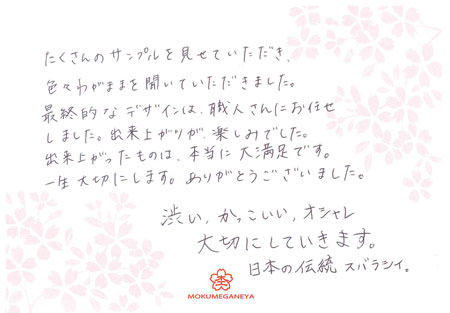 たくさんのサンプルを見せていただき、
色々わがままを聞いていただきました。
最終的なデザインは、職人さんにお任せ
しました。出来上がりが、楽しみでした。
出来上がったものは、本当に大満足です。
一生大切にします。ありがとうございました。
渋い，かっこいい，オシャレ
大切にしていきます。
日本の伝統 スバラシイ。
MOKUMEGANEYA